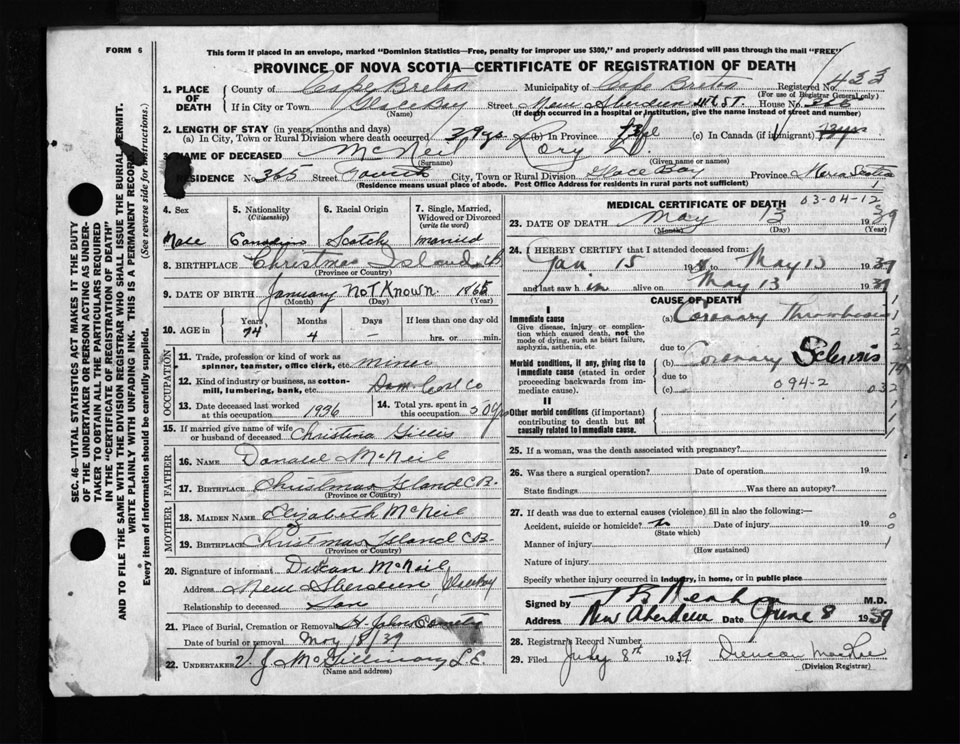 FORM 6
This form if placed in an envelope, marked "Dominion Statistics—Free, penalty for improper use $300," and properly addressed will pass through the mail "FREE"
PROVINCE OF NOVA SCOTIA—CERTIFICATE OF REGISTRATION OF DEATH
433
1. PLACE OF DEATH
County of Cape Breton Municipality of Cape Breton Registered No.
(For use of Registrar General only)
If in City or Town Glace Bay Street New Aberdeen House No.
(Name) (If death occurred in a hospital or institution, give the name instead of street and number)
2. LENGTH OF STAY (in years, months and days)
(a) In City, Town or Rural Division where death occurred (b) In Province (c) In Canada (if immigrant)
3. NAME OF DECEASED McNeil Rory
(Surname) (Given name or names)
RESIDENCE No. 365 Street City, Town or Rural Division Glace Bay Province Nova Scotia
(Residence means usual place of abode. Post Office Address for residents in rural parts not sufficient)
4. Sex Male
5. Nationality (Citizenship) Canadian
6. Racial Origin Scotch
7. Single, Married, Widowed or Divorced (write the word) married
8. BIRTHPLACE Christmas Island
(Province or Country)
9. DATE OF BIRTH January Not Known 1865
(Month) (Day) (Year)
10. AGE in Years 74 Months 4 Days - If less than one day old hrs. or min.
OCCUPATION
11. Trade, profession or kind of work as spinner, teamster, office clerk, etc. miner
12. Kind of industry or business, as cotton-mill, lumbering, bank, etc. Dom Coal Co
13. Date deceased last worked at this occupation 1936
14. Total yrs. spent in this occupation 50 yrs
15. If married give name of wife or husband of deceased Christina Gillis
FATHER
16. NAME Donald McNeil
17. BIRTHPLACE Christmas Island C.B.
(Province or Country)
MOTHER
18. MAIDEN NAME Elizabeth McNeil
19. BIRTHPLACE Christmas Island C.B.
(Province or Country)
20. Signature of informant McNeil
Address New Aberdeen Glace Bay
Relationship to deceased Son
21. Place of Burial, Cremation or Removal St. Johns
Date of burial or removal May 39
22. UNDERTAKER V. J. McGillivary
(Name and address)
MEDICAL CERTIFICATE OF DEATH 03-04-12
23. DATE OF DEATH May 13 39
(Month) (Day) (Year)
24. I HEREBY CERTIFY that I attended deceased from:
Jan 15 19 to May 13 1939
and last saw h im alive on May 13 1939
CAUSE OF DEATH
I
Immediate cause
Give disease, injury or complication which caused death, not the mode of dying, such as heart failure, asphyxia, asthenia, etc.
(a) Coronary Thrombosis
due to
Morbid conditions, if any, giving rise to immediate cause (stated in order proceeding backwards from immediate cause).
(b) Coronary Sclerosis
due to
(c) 094-2 032
II
Other morbid conditions (if important) contributing to death but not causally related to immediate cause.
25. If a woman, was the death associated with pregnancy?
26. Was there a surgical operation? Date of operation 19
State findings Was there an autopsy?
27. If death was due to external causes (violence) fill in also the following:—
Accident, suicide or homicide? no Date of injury 19
(State which)
Manner of injury
(How sustained)
Nature of injury
Specify whether injury occurred in industry, in home, or in public place
Signed by M.D.
Address New Aberdeen Date June 8 1939
28. Registrar's Record Number
29. Filed July 8th 1939
(Division Registrar)
SEC. 46—VITAL STATISTICS ACT MAKES IT THE DUTY
OF THE UNDERTAKER OR PERSON ACTING AS UNDER-
TAKER TO OBTAIN ALL THE PARTICULARS REQUIRED
IN THE "CERTIFICATE OF REGISTRATION OF DEATH"
AND TO FILE THE SAME WITH THE DIVISION REGISTRAR WHO SHALL ISSUE THE BURIAL PERMIT.
WRITE PLAINLY WITH UNFADING INK. THIS IS A PERMANENT RECORD
Every item of information should be carefully supplied. (See reverse side for instructions.)